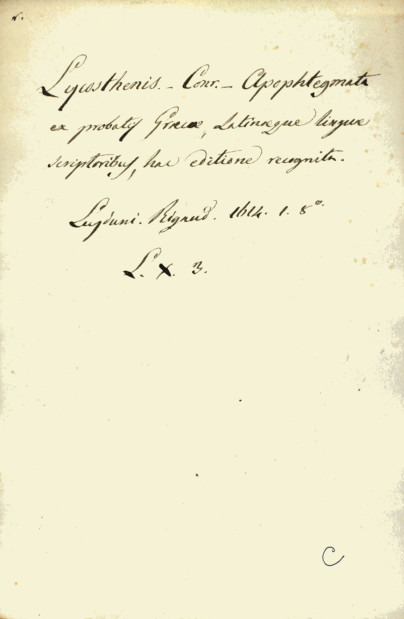 Lycosthenis. - Conr. - Apophtegmata
ex probatis Græcæ, Latinæque linguæ
scriptoribus, hac editione recognita.
Lugduni. Rigaud. 1614. 1. 8º.
L. X. 3.
C